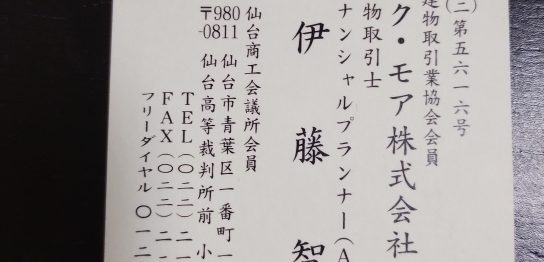 (二)第五六一六号
建物取引業協会会員
ク・モア株式会社
物取引士
ナンシャルプランナー(A
伊藤智
仙台商工会議所会員
〒980-0811 仙台市青葉区一番町一
仙台高等裁判所前 小
TEL(〇二二)二一
FAX(〇二二)二
フリーダイヤル 〇一二